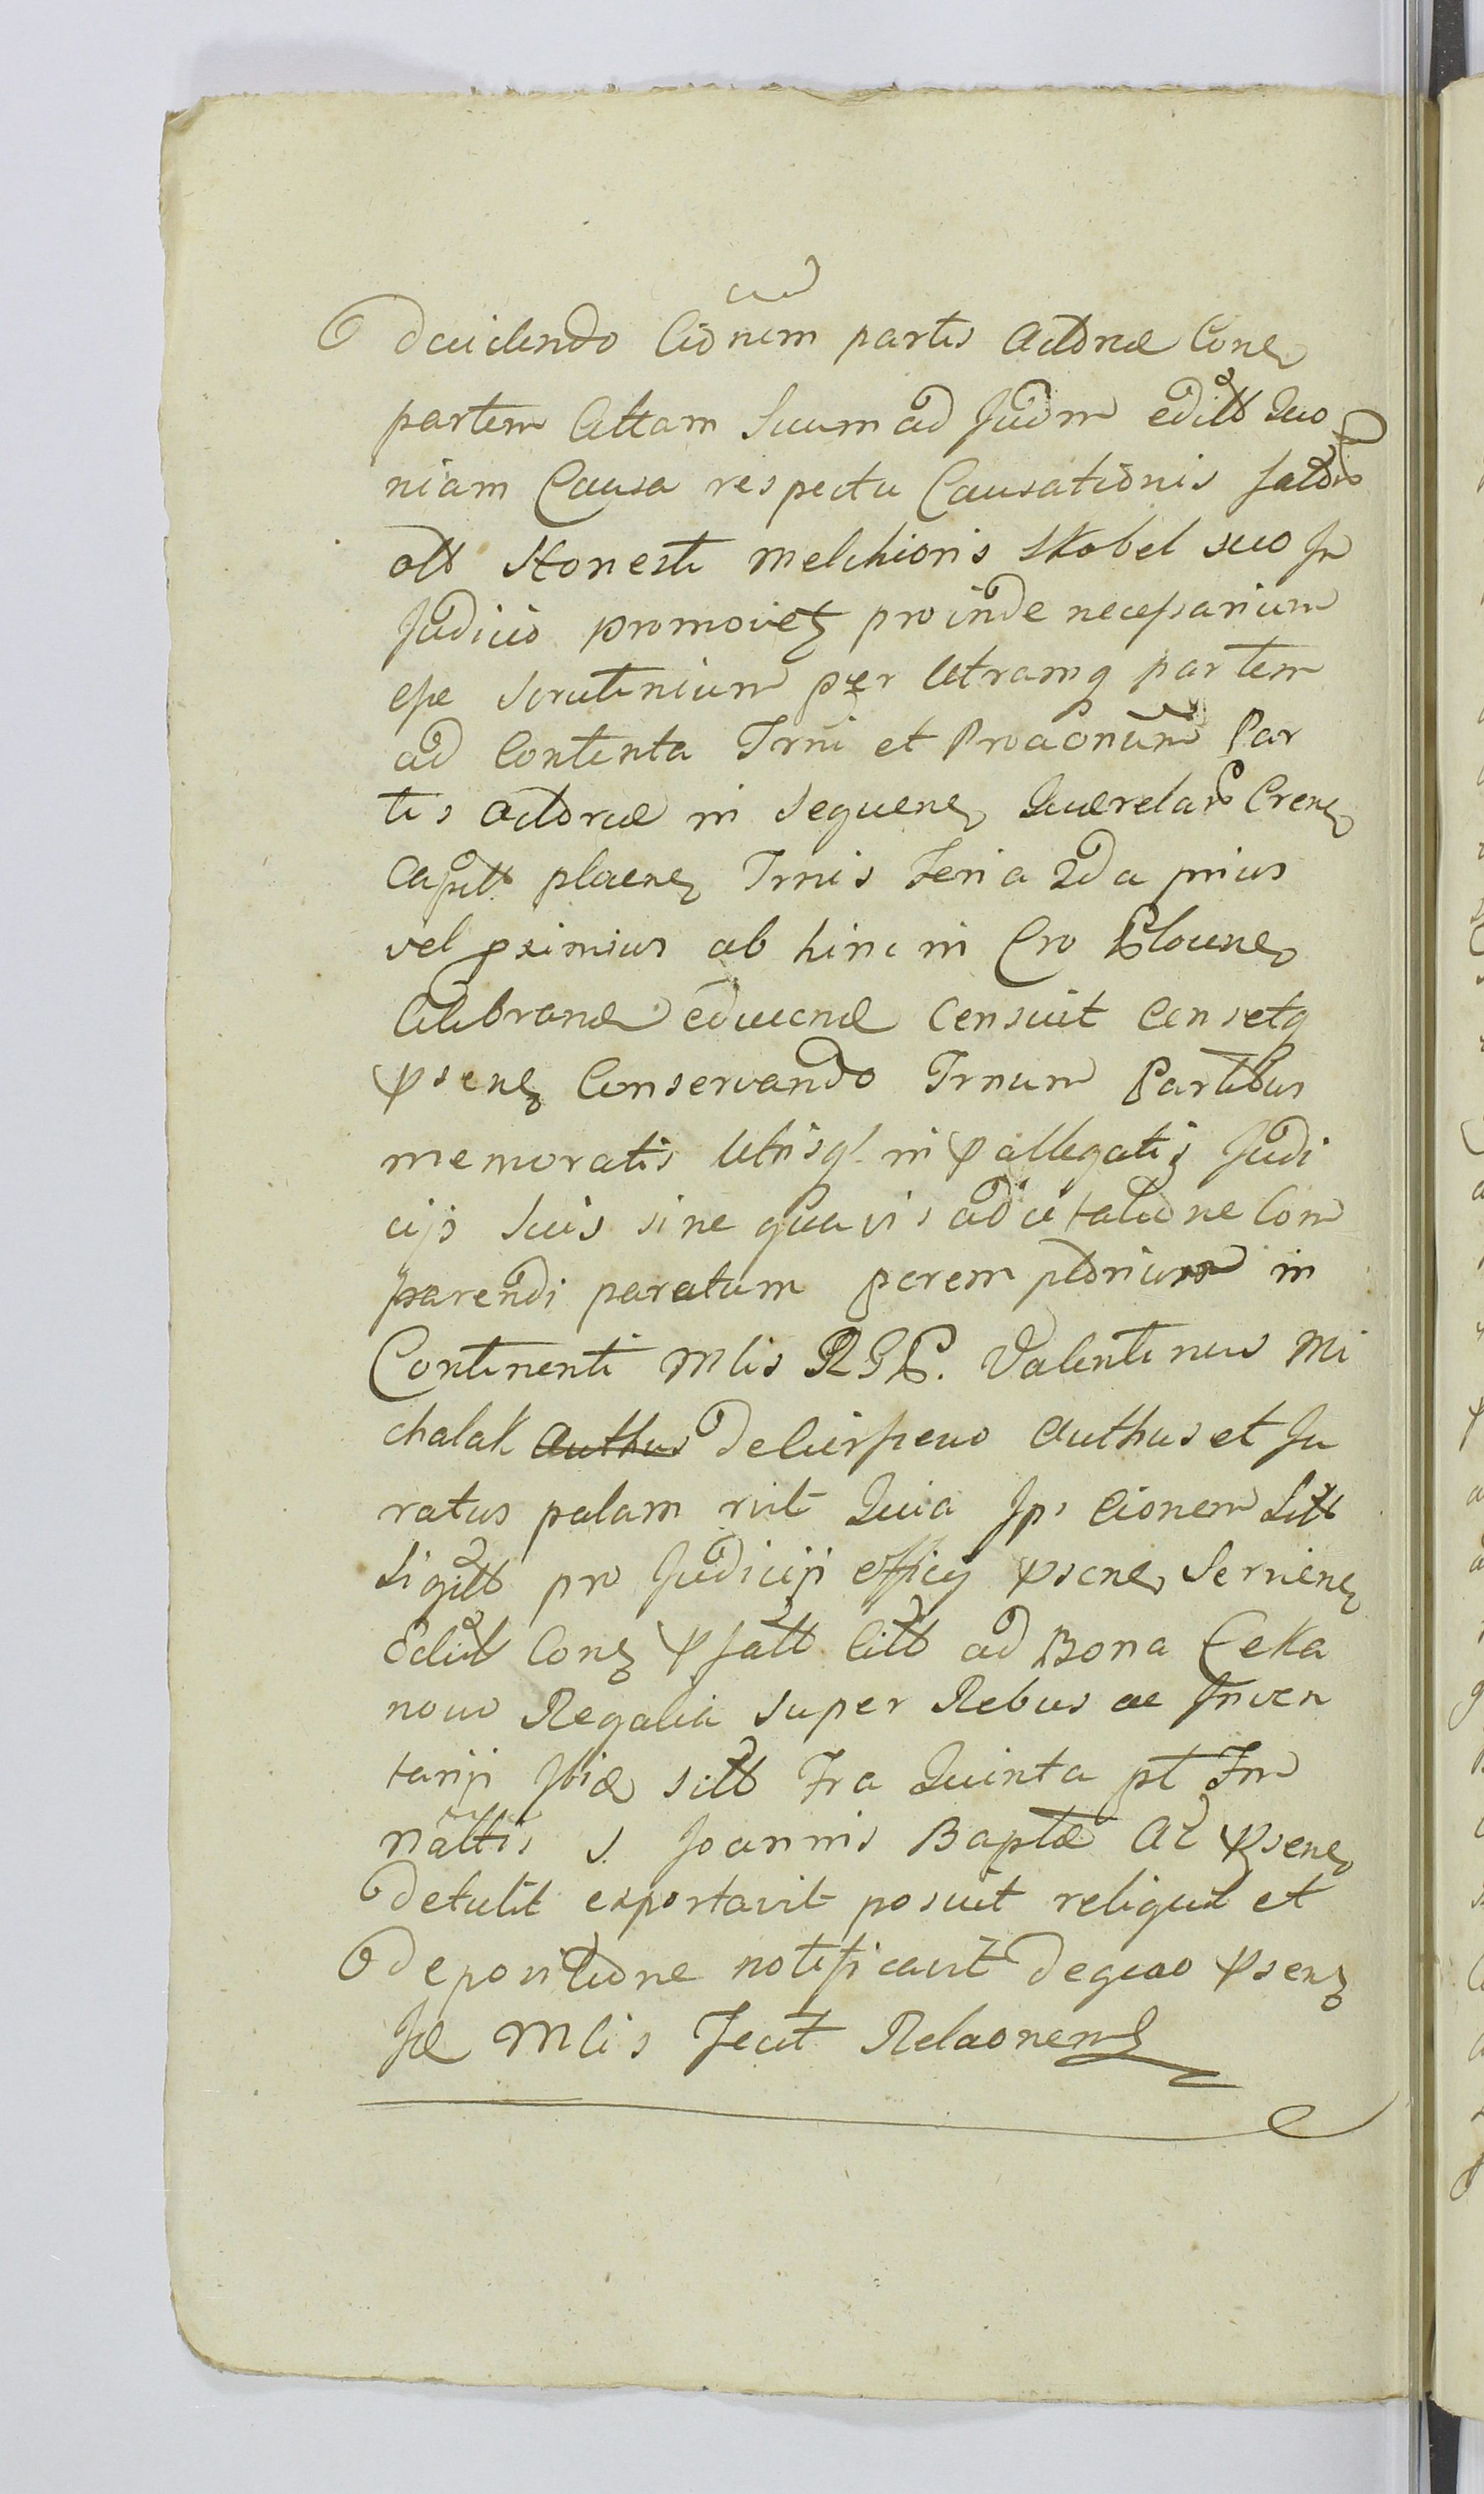 decidendo Citõnem partis Actoreæ Con̄
partem Cittam Suum ad Judm editt Quo
niam Causa respectu Causationis
olt Honesti Melchioris Skobel suo Jn
Judicio promovetz proinde necessarium
esse Scrutinium per Utramq partem
ad Contenta Trni et Proaonum Par
tis Actoreæ in Sequen Querelar Cren
Capitt placen Trnis Feria 2da prius
vel proximius ab hinc in Cro
Celebrand educend Censuit Censetq
psenz Conservando Trnum Partibus
memoratis Utrisq in pallegatis Judi
cijs Suis sine quavis adcitatione Com
parendi paratum peremptorium in
Continenti Mlis RGP. Valentinus Mi
chalak Authus de authus et Ju
ratus palam rvit Quia Jps Cionem Litt
Sigitt pro Judicijs officij psen Servien
Edit Conz pfatt Citt ad Bona Ceka
novo Regalia super Rebus ac Inven
tarijs Jbid sitt Fra Quinta pt Frm
nãttis S. Joannis Baptæ Ao psen
detulit exportavit posuit reliquit et
depositione notificavit de quo psenz
Jd Mlis Fecit Relaonem